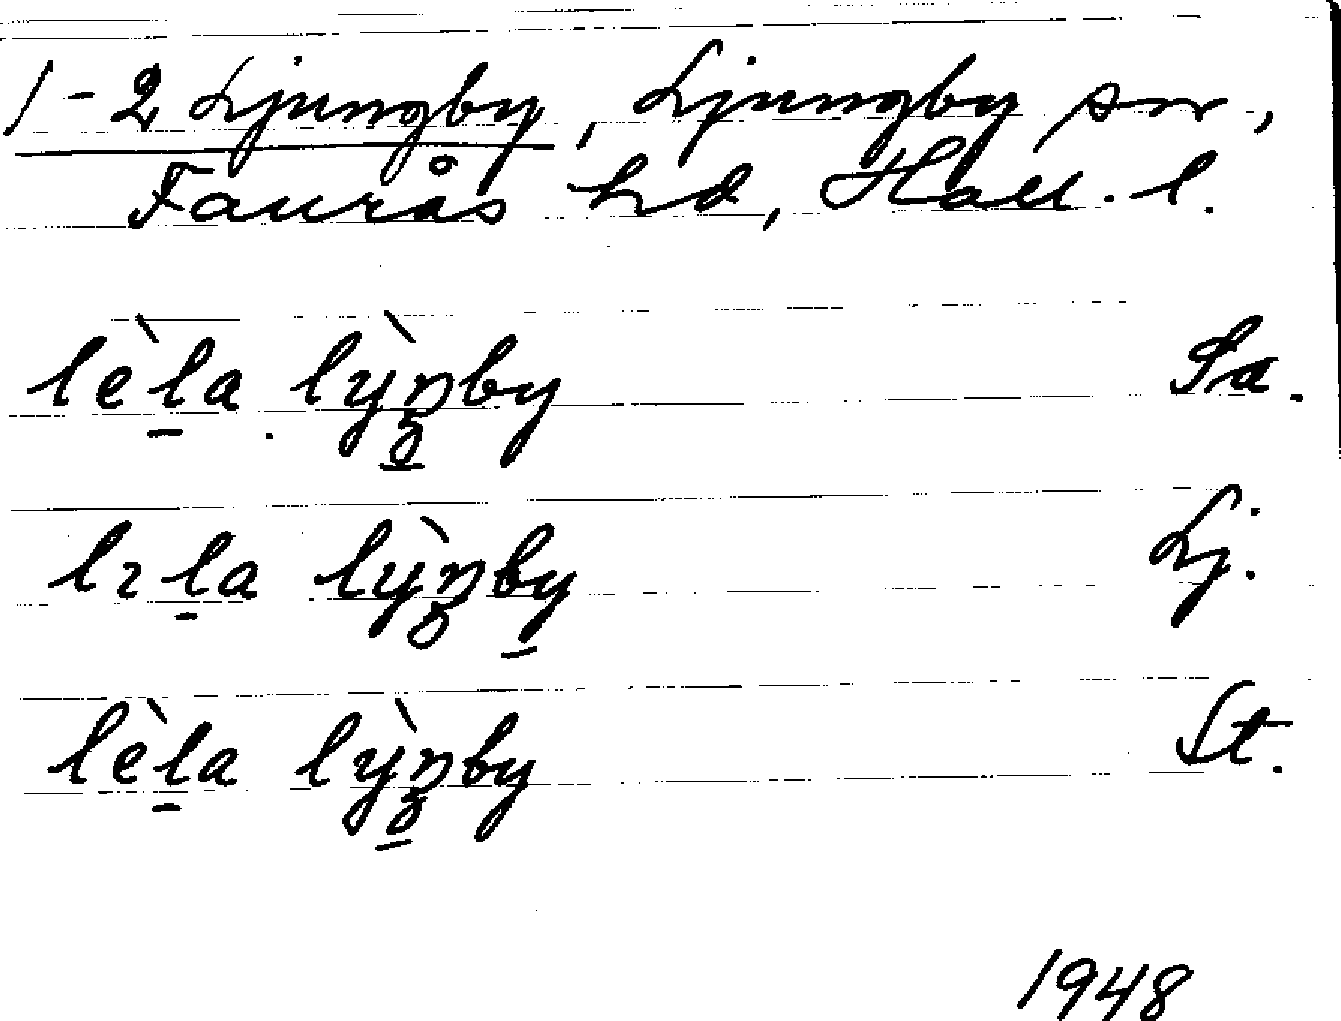 1-2 Ljungby, Ljungby sn,
Faurås hd, Hall. l.
lèl̠a lỳŋ̠by Sa.
lɪl̠a lỳŋby̠ Lj.
lèl̠a lỳŋ̠by St.
1948